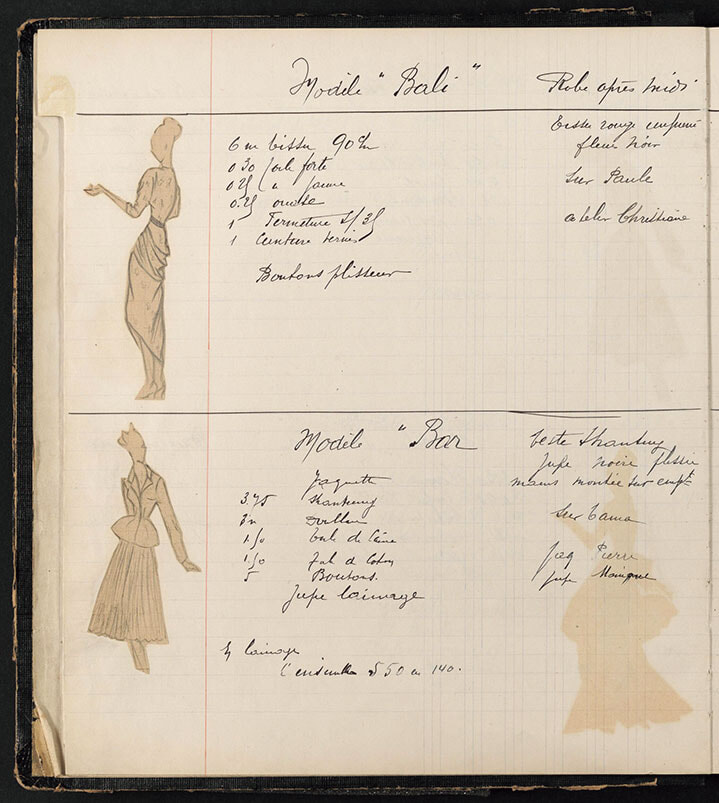 Modèle "Bali"
Robe après midi
6 m tissu 90 c/m
0 30 toile forte
0 25 " " jaune
0.25 ouate
1 Fermeture
1 Ceinture vernis
Boutons plisseur
Tissu rouge imprimé
fleur noir
sur Paule
atelier Christiane
Modèle "Bar
Jaquette
3.75 shantung
1.50 toile de
1.50 de
5 Boutons.
Jupe lainage
lainage
L'ensemble 550 en 140.
Veste Shantung
Jupe noire plissée
mains montée sur empt
sur Tania
Jaq Pierre
jupe Monique